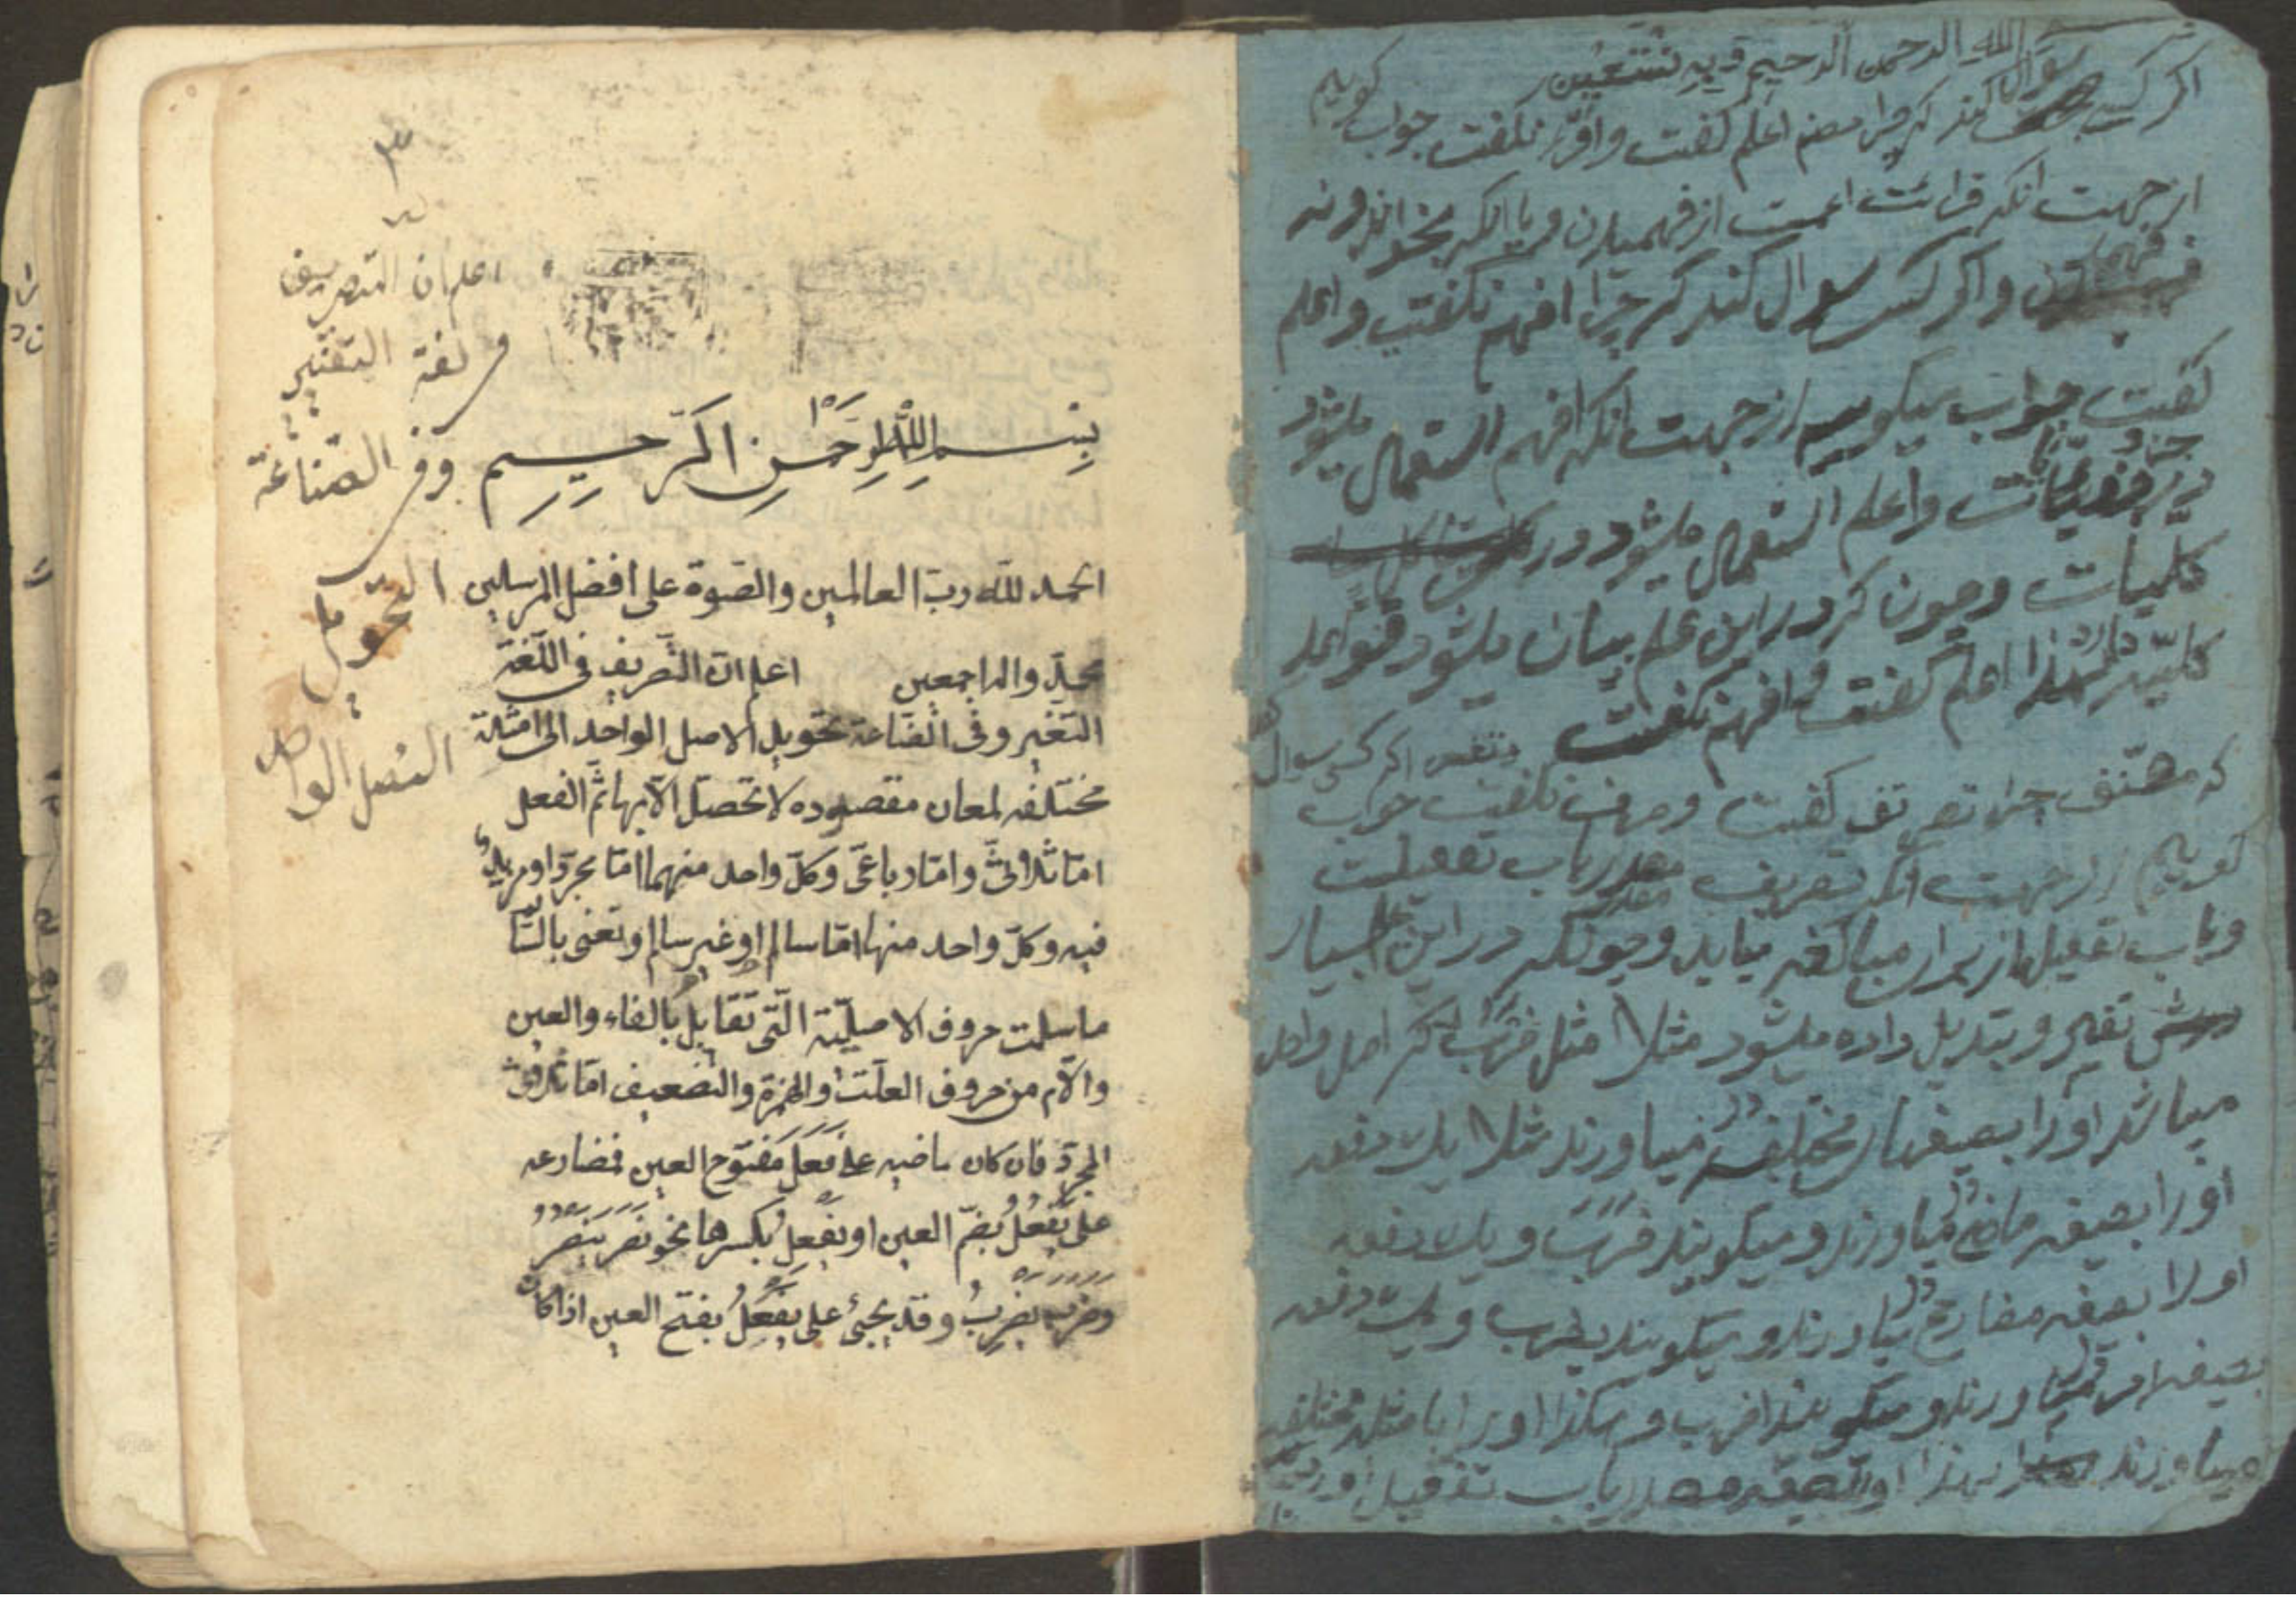 الله الرحمن الرحيم و به نستعين
اكر كسى سوال كند كه چرا مصنف اعلم كفت و اقرء نكفت جواب كوييم
از جهت انكه قرائت اعمست از فهميدن و يا انكه بخواند و نه
فهمد و اكر كسى سوال كند كه چرا افهم نكفت و اعلم
كفت جواب ميكوييم از جهت انكه افهم استعمال ميشود
در جزئيات و اعلم استعمال ميشود در
كليات و چون كه در اين علم بيان ميشود قواعد
كليه لهذا اعلم كفت و افهم نكفت اكر كسى سوال
كه مصنف چرا تصريف كفت و صرف نكفت جواب
كوييم از جهت انكه تصريف مصدر باب تفعيلست
و باب تفعيل از براى مبالغه ميايد و چونكه در اين علم بسيار
تغير و تبديل داده ميشود مثلا مثل ضرب كه اصل واحد
ميباشد او را بصيغهاى مختلفه در مياورند مثلا يك دفعه
او را بصيغه ماضى در مياورند و ميكويند ضرب و يك دفعه
او را بصيغه مضارع در مياورند و ميكويند يضرب و يك دفعه
بصيغه امر در مياورند و ميكويند اضرب و هكذا او را بامثله مختلفه
مياورند لهذا مصدر باب تفعيل
اعلم ان التصريف
فى لغة التغيير
و فى الصناعة
التحويل
الاصل الواحد
بسم الله الرحمن الرحيم
الحمد لله رب العالمين والصلوة على افضل المرسلين
محمد واله اجمعين اعلم ان التصريف فى اللغة
التغير وفى الصناعة تحويل الاصل الواحد الى امثلة
مختلفه لمعان مقصوده لا تحصل الا بها ثم الفعل
اما ثلاثى واما رباعى وكل واحد منهما اما مجرد او مزيد
فيه وكل واحد منها اما سالم او غير سالم ونعنى بالسا
ما سلمت حروف الاصلية التى تقابل بالفاء والعين
واللام من حروف العلت والهمزة والتضعيف اما ثلاثى
المجرد فان كان ماضيه على فعل مفتوح العين فمضارعه
على يفعل بضم العين او يفعل بكسرها نحو نصر ينصر
وضرب يضرب وقد يجيئ على يفعل بفتح العين اذا كان